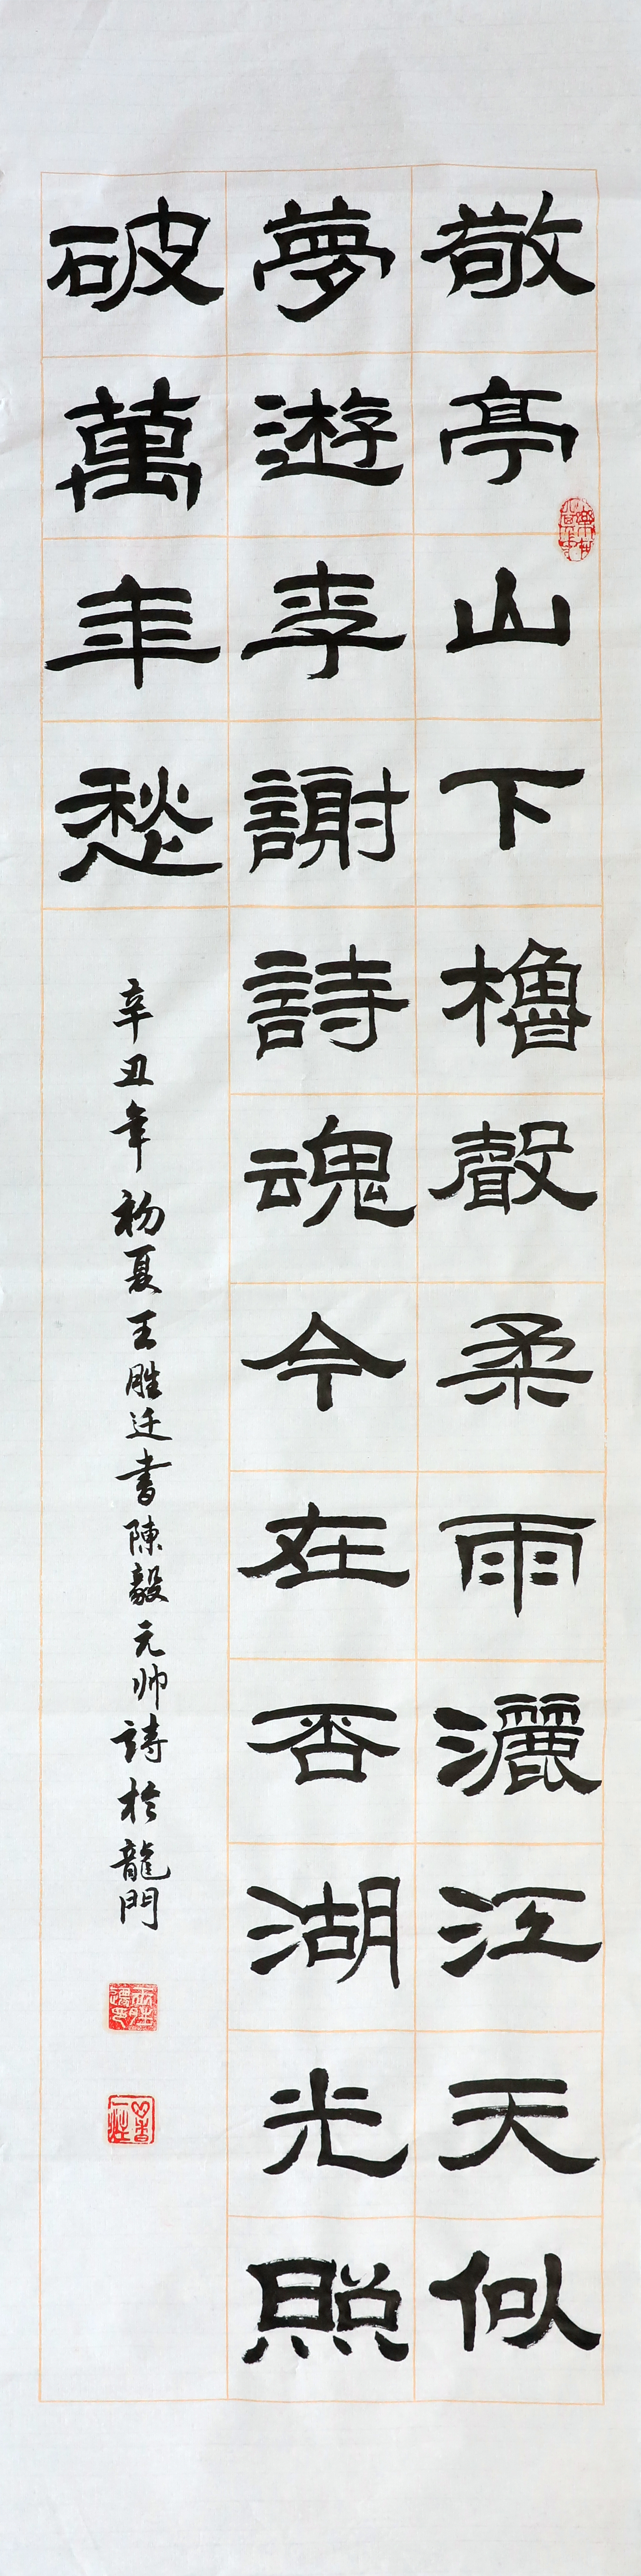 敬亭山下櫓聲柔雨灑江天似
夢遊李謝詩魂今在否湖光照
破萬年愁
辛丑年初夏王胜迁書陳毅元帅詩於龍門